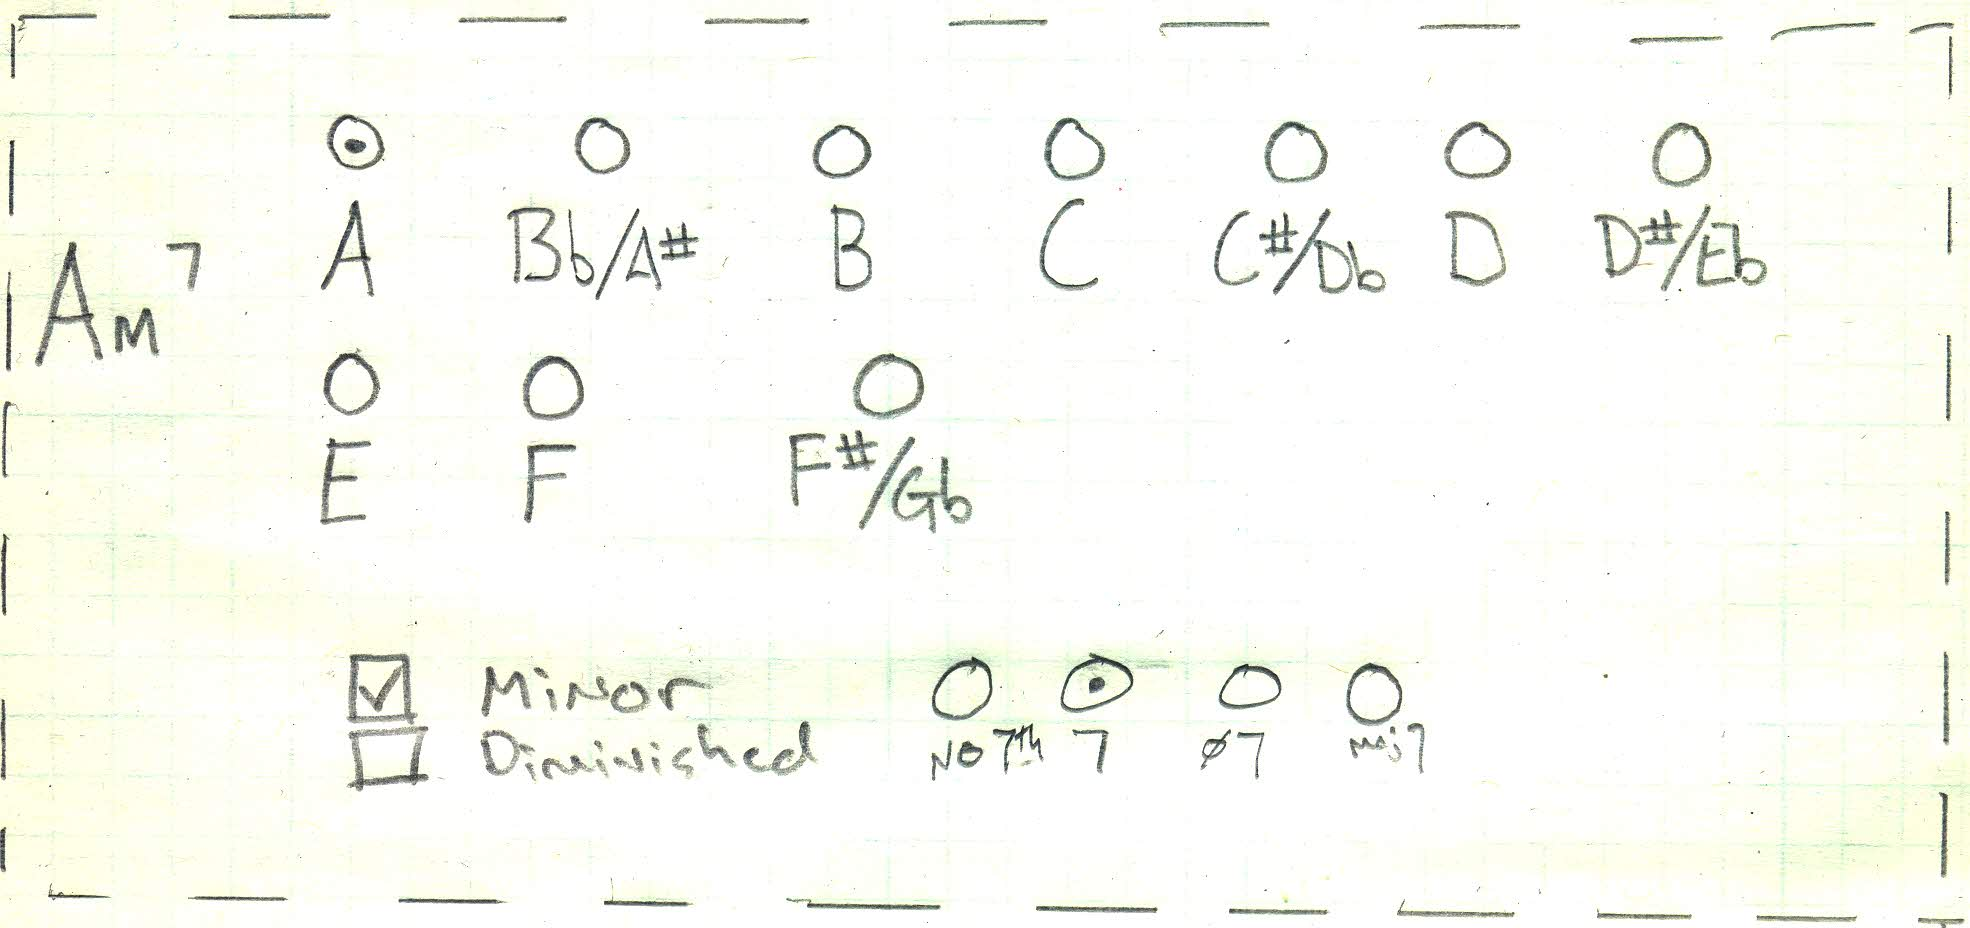 Am7
A Bb/A# B C C#/Db D D#/Eb
E F F#/Gb
Minor
Diminished
NO 7th 7 ø7 maj7